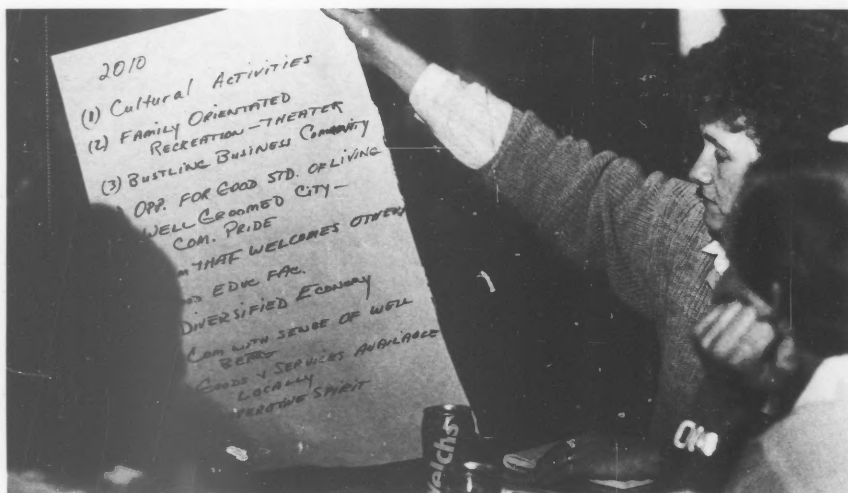 2010
(1) Cultural Activities
(2) Family Orientated
Recreation - Theater
(3) Bustling Business Community
Opp. for Good Std. of Living
Well Groomed City -
Com. Pride
that welcomes others
Educ Fac.
Diversified Economy
Com with sense of well
Being
Goods & Services Available
Locally
Spirit
Welchs